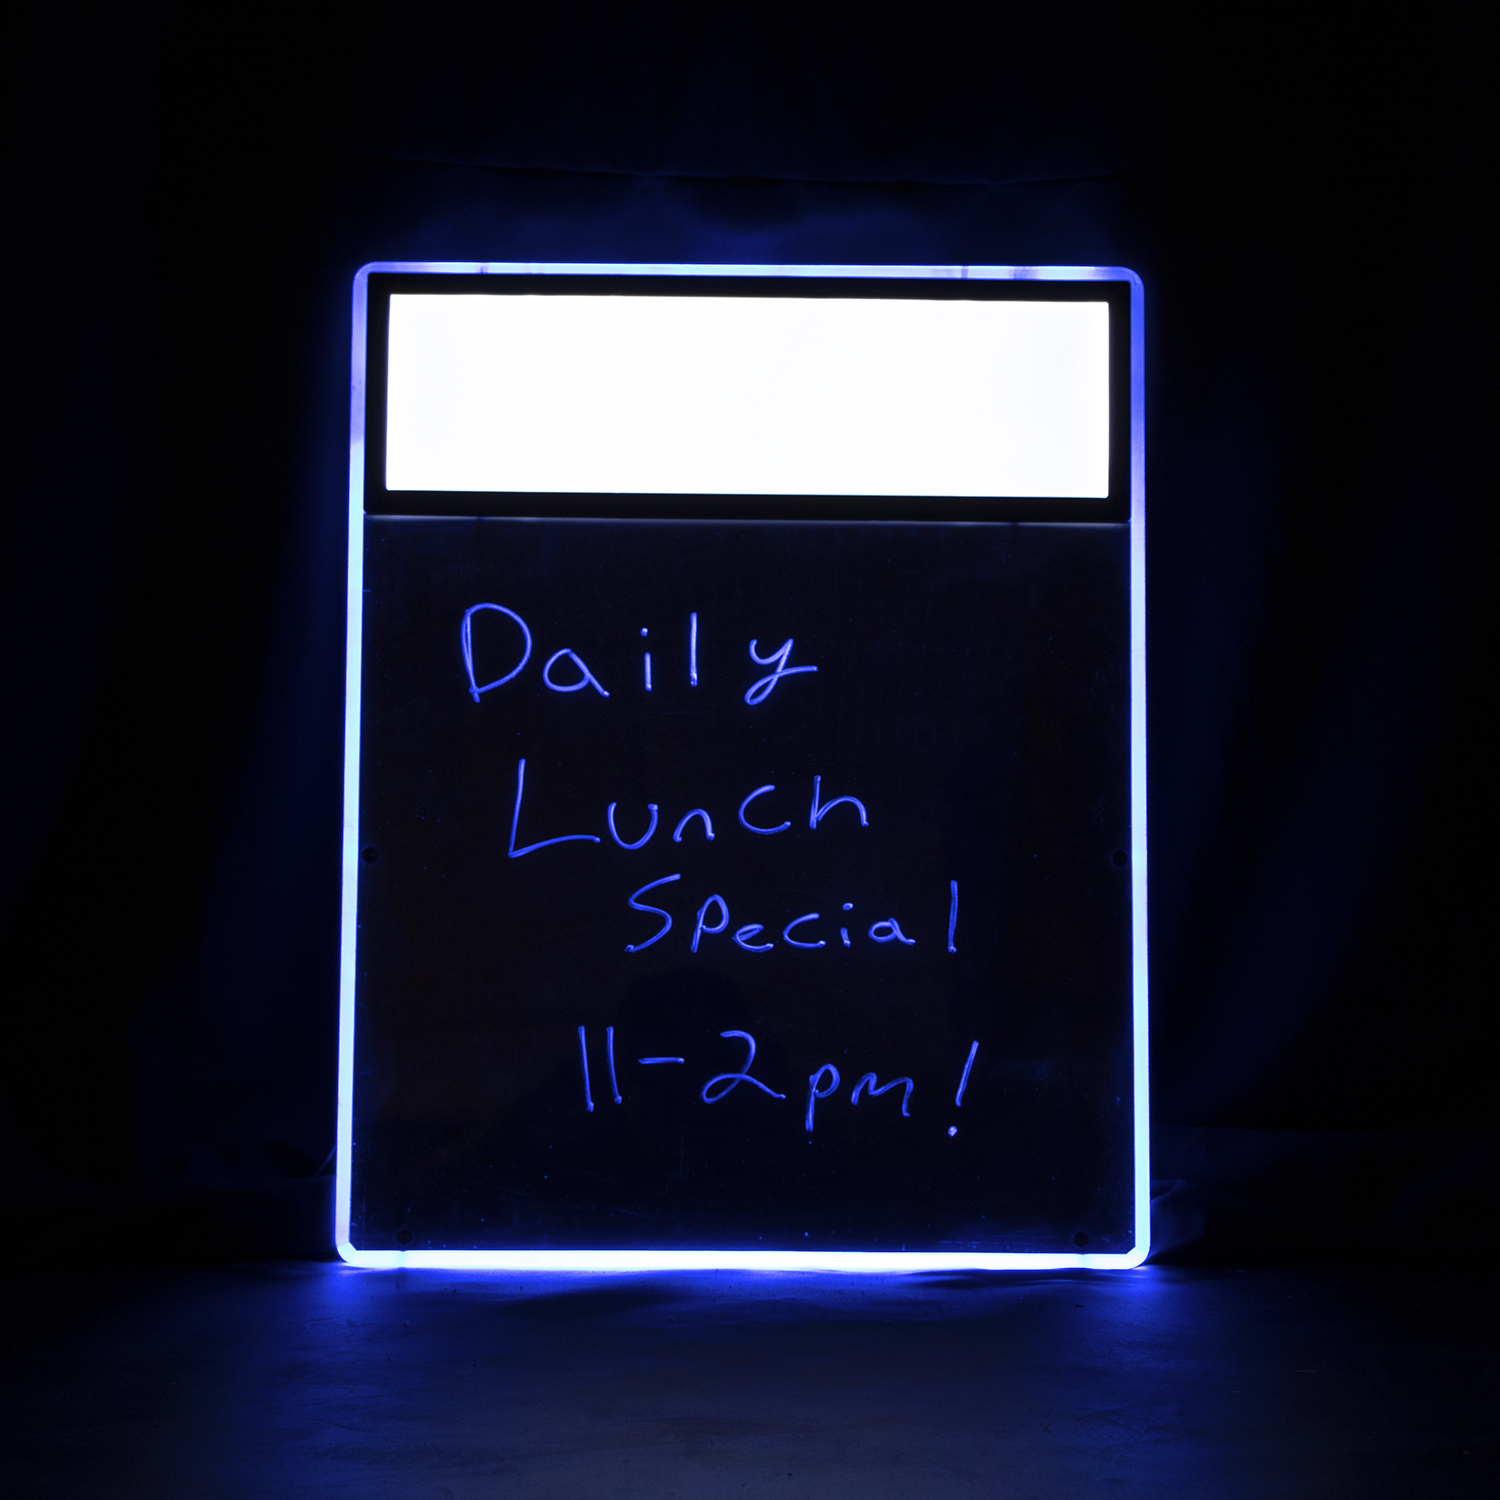 Daily
Lunch
Special
11-2pm!